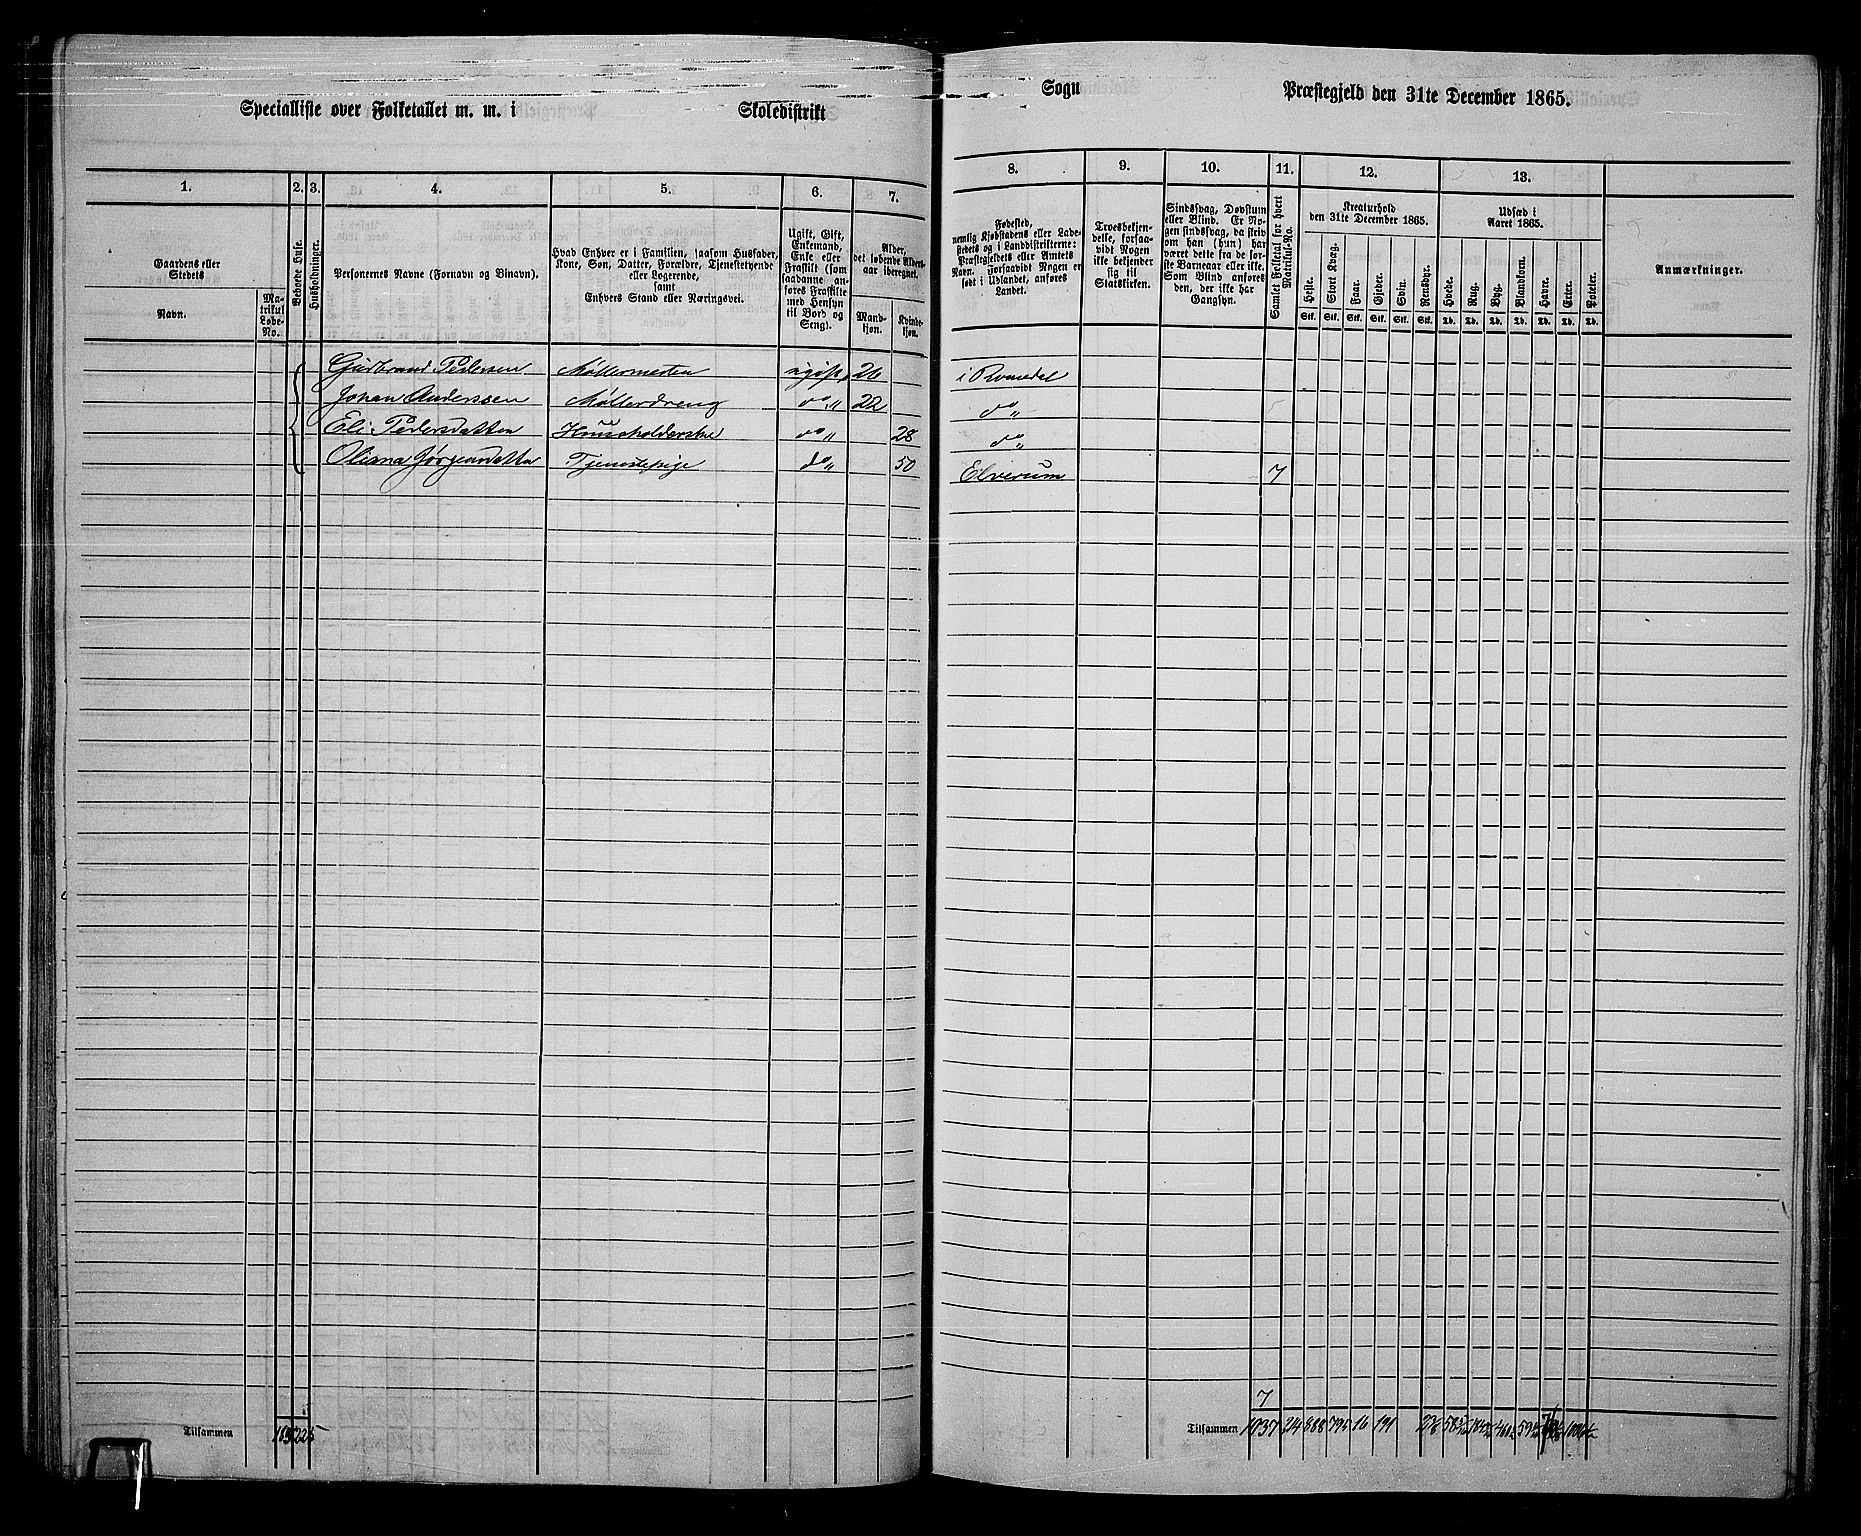 Specialliste over Folketallet m. m. i Skoledistrikt Sogn Præstegjeld den 31te December 1865.
1. 2. 3. 4. 5. 6. 7. 8. 9. 10. 11. 12. 13.
Gaardens eller Stedets
Navn.
Matrikul Løbe-No.
Beboede Huse.
Husholdninger.
Personernes Navne (Fornavn og Binavn).
Hvad Enhver er i Familien, saasom Husfader, Kone, Søn, Datter, Forældre, Tjenestetyende eller Logerende,
samt
Enhvers Stand eller Næringsvei.
Ugift, Gift, Enkemand, Enke eller Fraskilt (som saadanne anføres Fraskilte med Hensyn til Bord og Seng).
Alder, det løbende Alders-aar iberegnet.
Mandkjøn.
Kvindekjøn.
Fødested, nemlig Kjøbstadens eller Ladestedets og i Landdistrikterne: Præstegjeldets eller Amtets Navn. Forsaavidt Nogen er født i Udlandet, anføres Landet.
Troesbekjendelse, forsaavidt Nogen ikke bekjender sig til Statskirken.
Sindssvag, Døvstum eller Blind. Er Nogen sindssvag, da skriv om han (hun) har været dette fra de første Barneaar eller ikke. Som Blind anføres den, der ikke har Gangsyn.
Samlet Folketal for hvert Matrikul-No.
Kreaturhold den 31te December 1865.
Heste. Stort Kvæg. Faar. Gjeder. Svin. Rensdyr.
Stk. Stk. Stk. Stk. Stk. Stk.
Udsæd i Aaret 1865.
Hvede. Rug. Byg. Blandkorn. Havre. Erter. Poteter.
Td. Td. Td. Td. Td. Td. Td.
Anmærkninger.
Gudbrand Pedersen Møllermesten ugift 26 i Romedal
Johan Anderssen Møllerdreng do " 22 do "
Eli Pedersdatter Huusholderske do " 28 do "
Oliana Jørgensdatter Tjenestepige do " 50 Elverum 7
7
Tilsammen
Tilsammen 1037 214 888 795 16 191